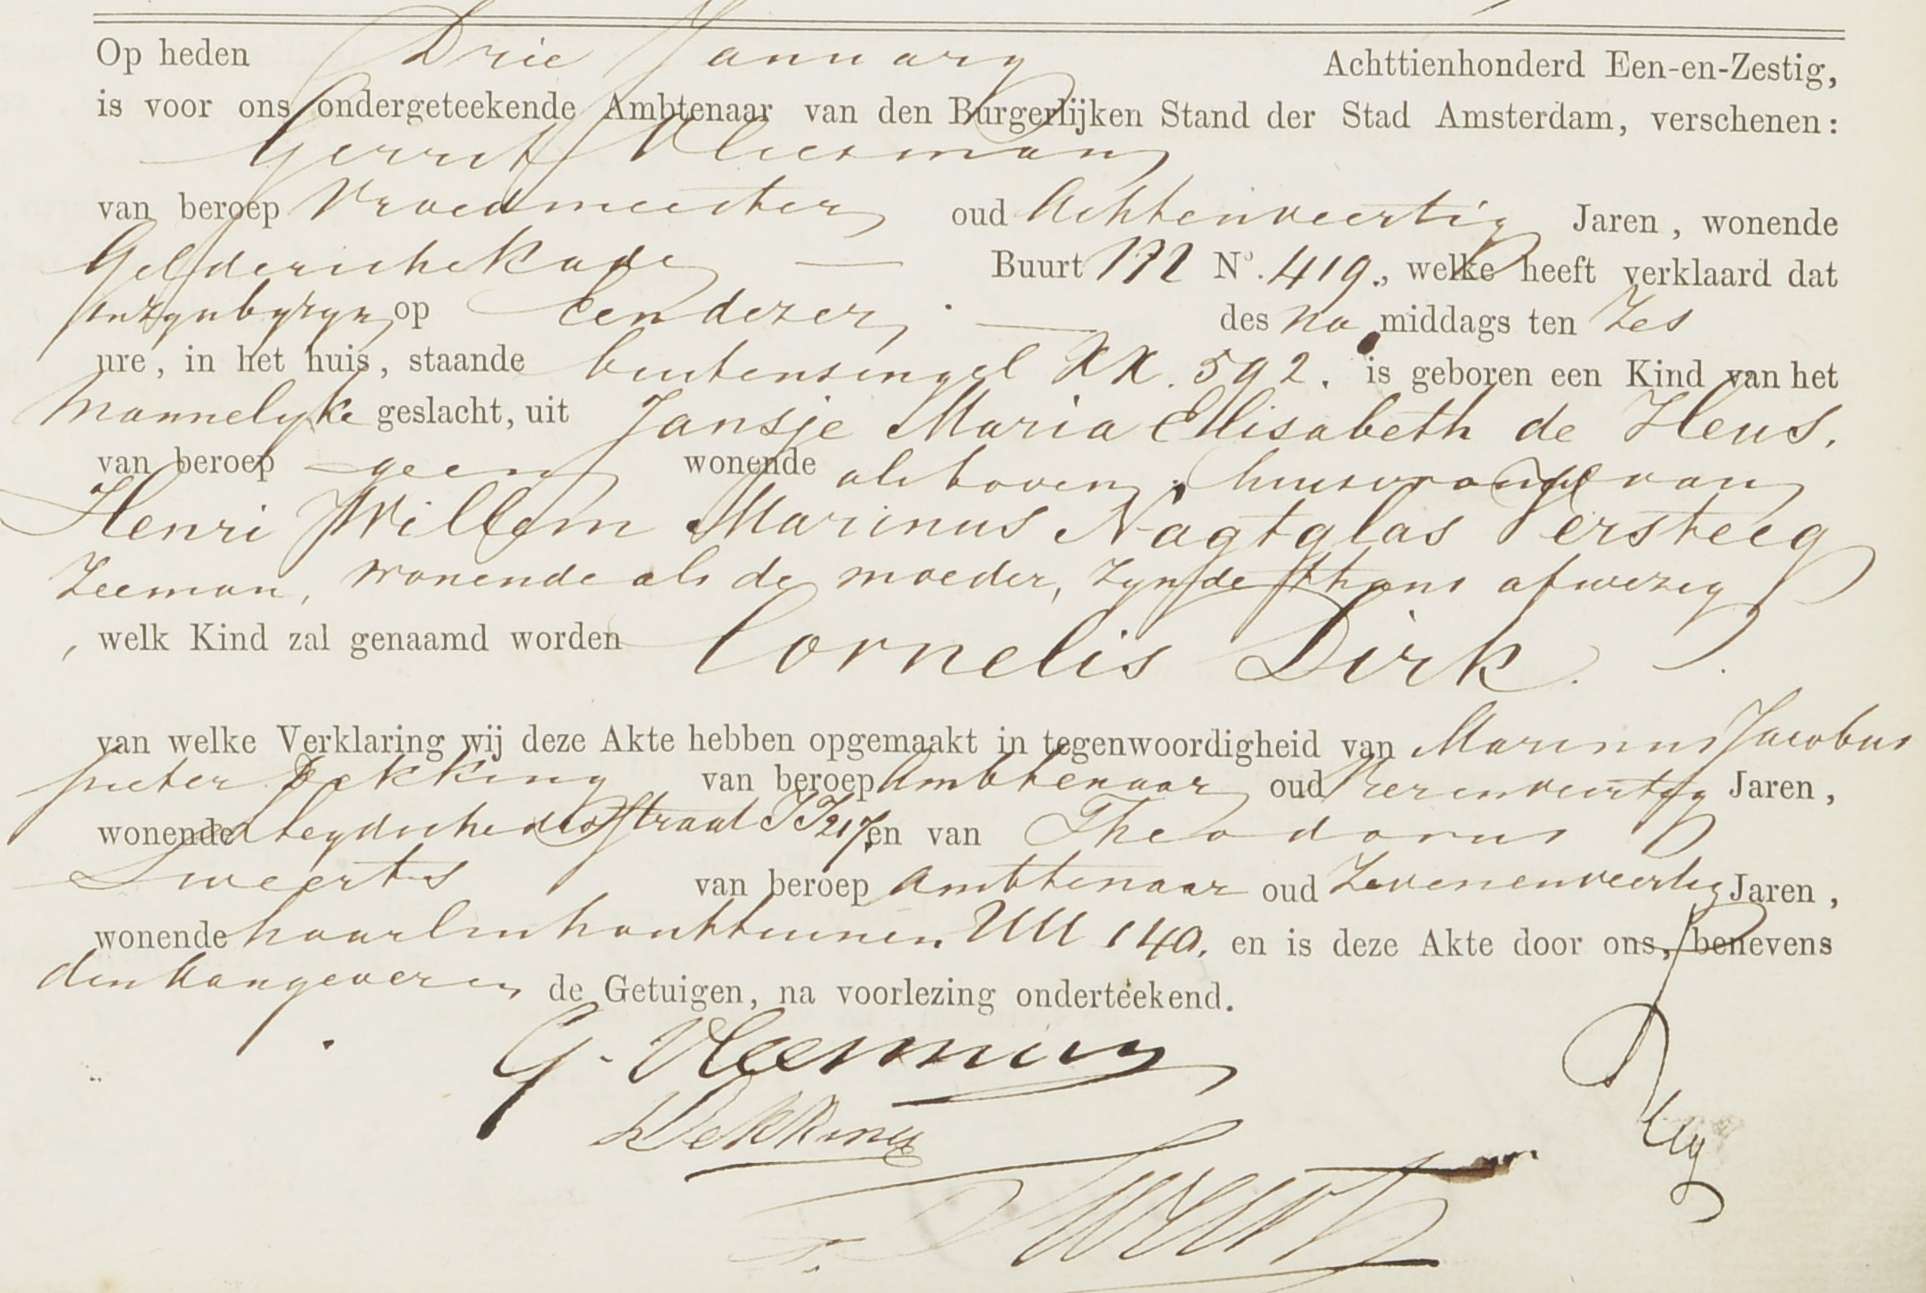 Op heden Drie January Achttienhonderd Een-en-Zestig,
is voor ons ondergeteekende Ambtenaar van den Burgerlijken Stand der Stad Amsterdam, verschenen:
Gerrit Vleesman
van beroep Vroedmeester oud Achtenveertig Jaren, wonende
Geldersche Kade Buurt N°. 419., welke heeft verklaard dat
in zyn byzyn op Een dezer, des na middags ten Zes
ure, in het huis, staande buitensingel KK. 592. is geboren een Kind van het
Mannelyke geslacht, uit Jansje Maria Elisabeth de Heus.
van beroep geen wonende als boven, huisvrouw van
Henri Willem Marinus Nagtglas Versteeg
Zeeman, wonende als de moeder, zynde thans afwezig
, welk Kind zal genaamd worden Cornelis Dirk.
van welke Verklaring wij deze Akte hebben opgemaakt in tegenwoordigheid van Marinus Jacobus
pieter Dekking van beroep Ambtenaar oud Vierenveertig Jaren,
wonende en van Theodorus
Sweerts van beroep Ambtenaar oud Zevenenveertig Jaren,
wonende haarlm houttuinen UU 140. en is deze Akte door ons, benevens
den Aangever en de Getuigen, na voorlezing onderteekend.
G. Vleesman
Dekking
T. Sweerts